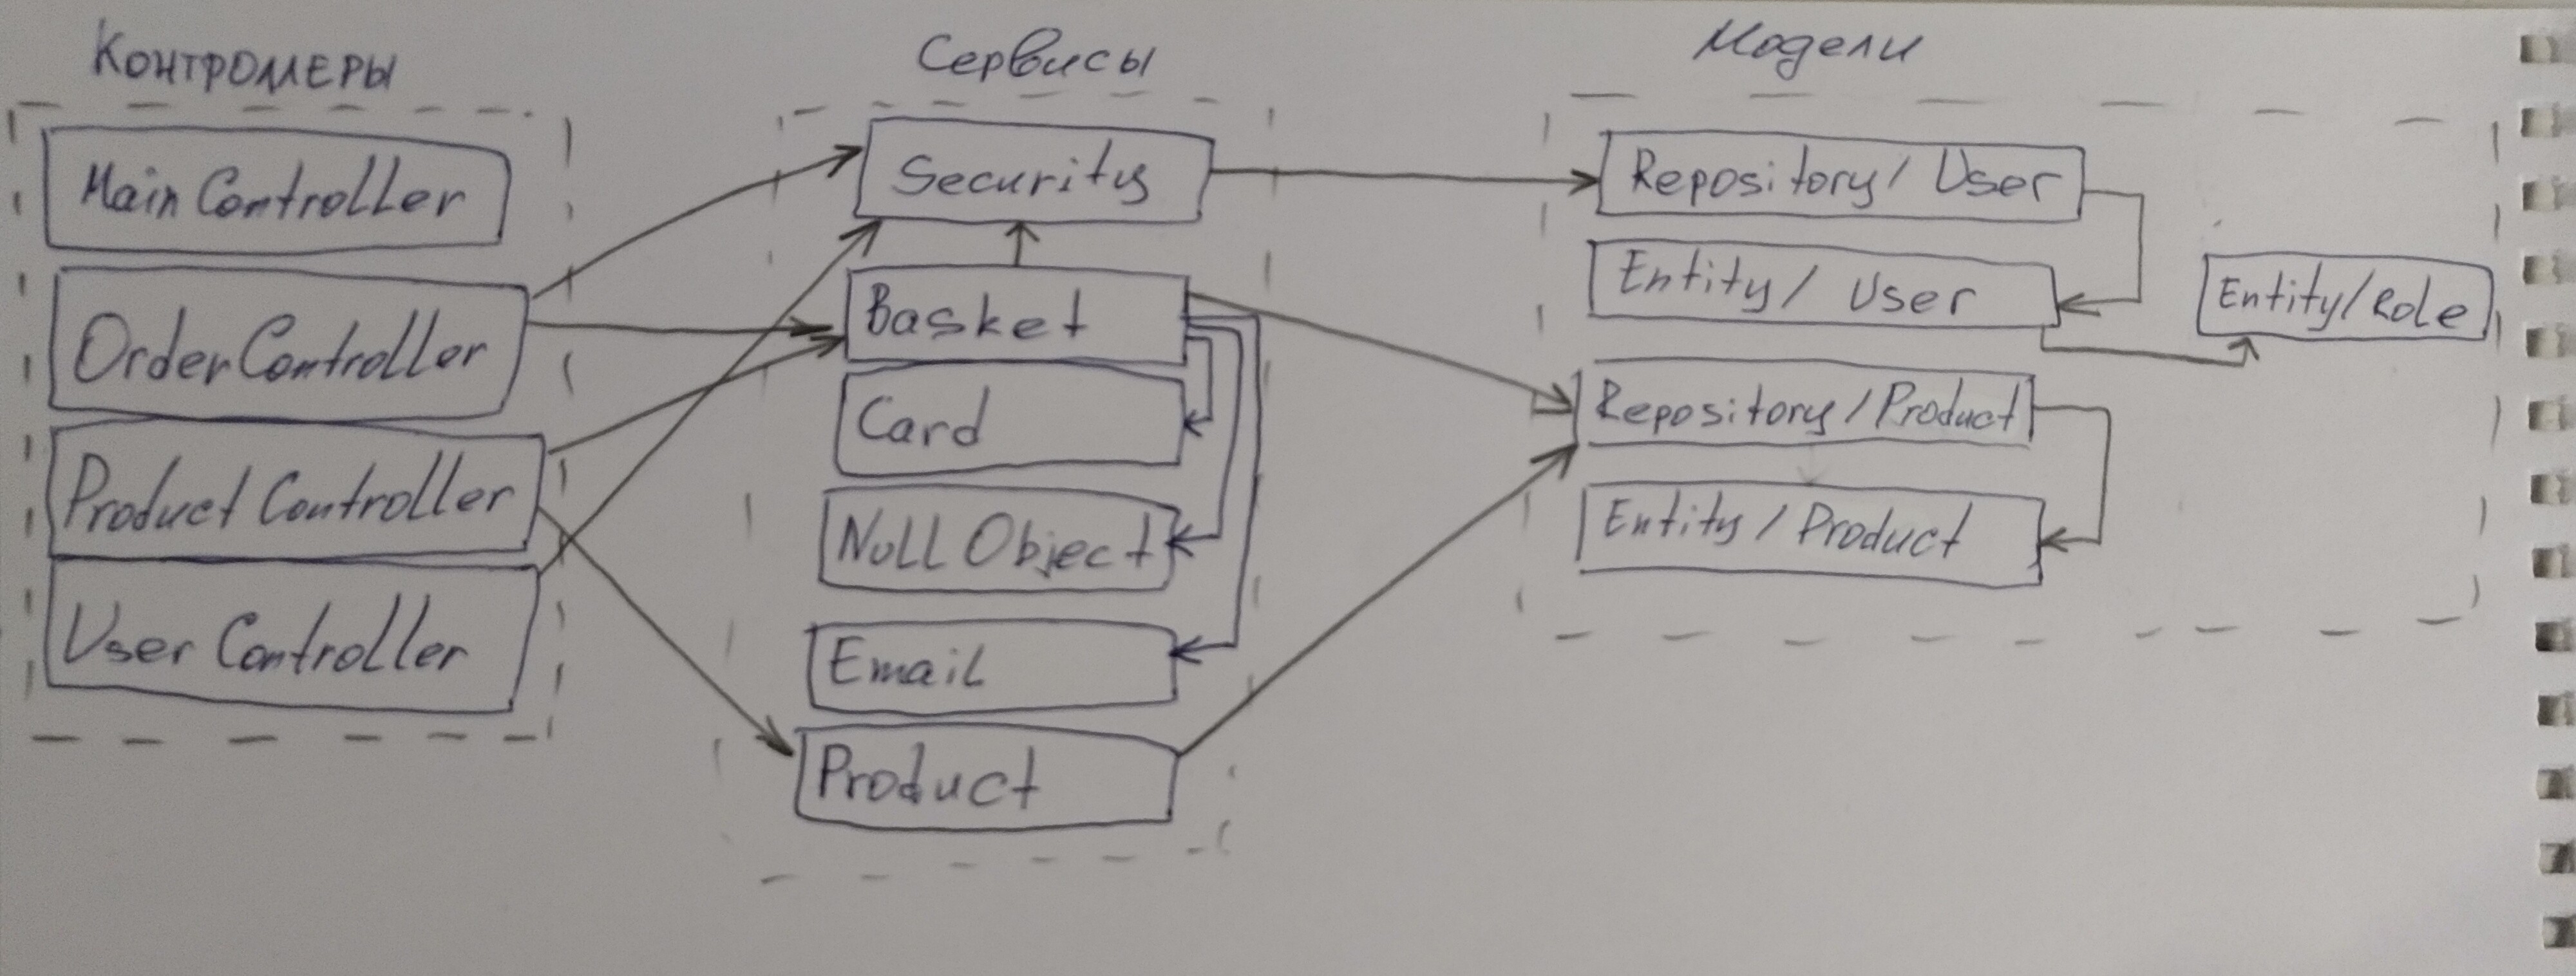 Контроллеры
Main Controller
Order Controller
Product Controller
User Controller
Сервисы
Security
Basket
Card
Null Object
Email
Product
Модели
Repository / User
Entity / User
Entity/Role
Repository / Product
Entity / Product